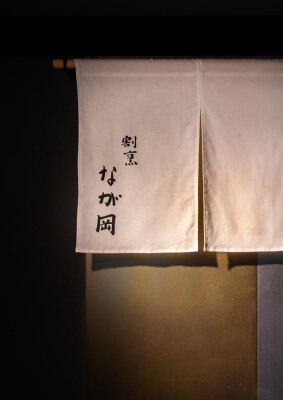 割烹
なが岡